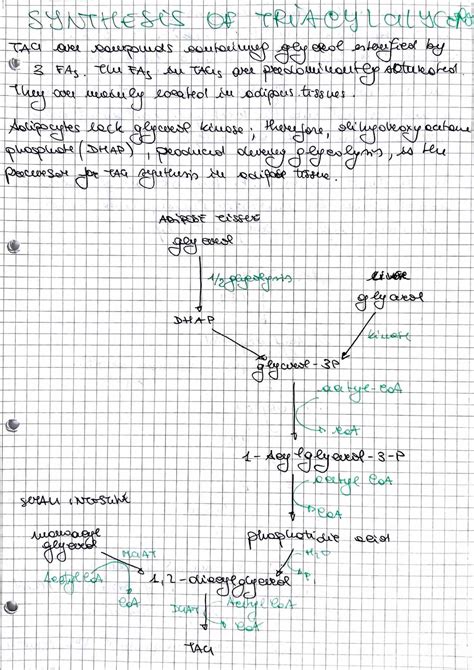 SYNTHESIS OF TRIACYLGLYCEROLS
TAG are compounds containing glycerol esterified by
3 FAs. The FAs in TAGs are predominantly saturated
They are mainly located in adipous tissues.
Adipocytes lack glycerol kinase; therefore, dihydroxyacetone
phosphate (DHAP), produced during glycolysis, is the
precursor for TAG synthesis in adipose tissue.
ADIPOSE TISSUE
glycerol
1/2 glycolysis
liver
glycerol
DHAP
kinase
glycerol-3P
acetyl-CoA
CoA
1-Acylglycerol-3-P
acetyl CoA
CoA
SMALL INTESTINE
phosphatidic acid
monoacyl
glycerol
MGAT
H2O
Pi
Acetyl CoA
1,2-diacylglycerol
CoA
DGAT
Acetyl CoA
CoA
TAG